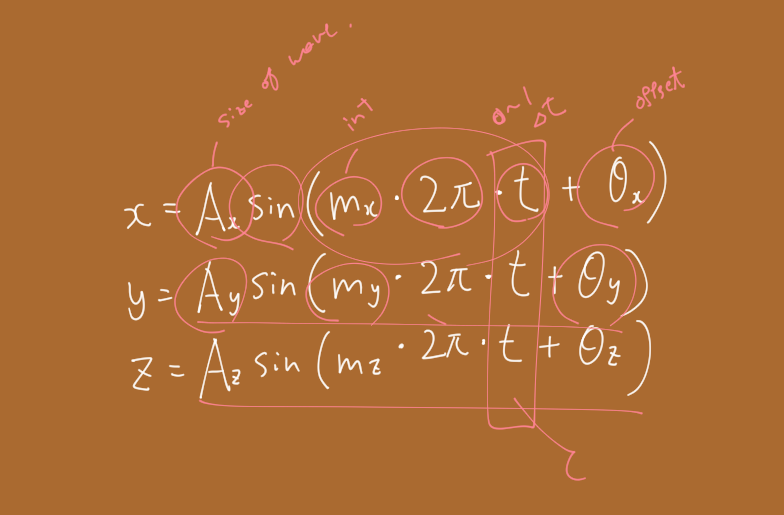 size of wave.
int
0~1
Δt
offset
x = Aₓ sin (mₓ · 2π · t + θₓ)
y = A_y sin (m_y · 2π · t + θ_y)
z = A_z sin (m_z · 2π · t + θ_z)